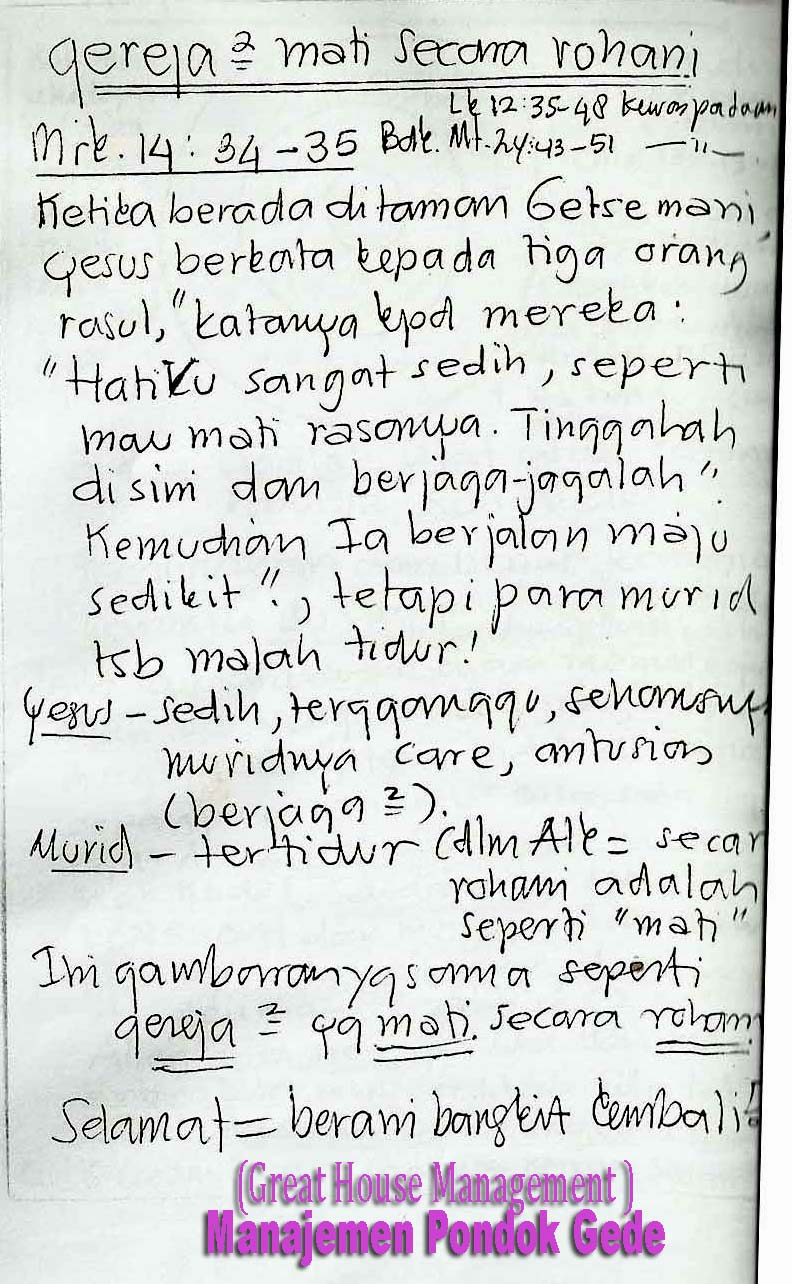 gereja² mati secara rohani
Lk 12:35-48 kewaspadaan
Mrk. 14: 34-35 Bdk. Mt. 24:43-51 —"—
Ketika berada ditaman Getsemani,
Yesus berkata kepada tiga orang
rasul, "katanya kpd mereka:
"HatiKu sangat sedih, seperti
mau mati rasanya. Tinggalah
disini dan berjaga-jagalah".
Kemudian Ia berjalan maju
sedikit"., tetapi para murid
tsb malah tidur!
Yesus - sedih, terganggu,
muridnya care, antusias
(berjaga²).
Murid - tertidur (dlm Alk = secar
rohani adalah
seperti "mati"
Ini gambaran yg sama seperti
gereja² yg mati. secara rohani
Selamat = berani bangkit kembali!
(Great House Management )
Manajemen Pondok Gede